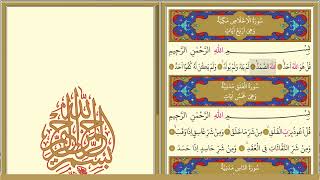 سُورَةُ الْإِخْلَاصِ مَكِّيَّةٌ
وَهِيَ أَرْبَعُ آيَاتٍ
بِسْمِ اللّٰهِ الرَّحْمٰنِ الرَّحِيمِ
قُلْ هُوَ اللّٰهُ أَحَدٌ اللّٰهُ الصَّمَدُ لَمْ يَلِدْ وَلَمْ يُولَدْ وَلَمْ يَكُنْ لَهُ كُفُوًا أَحَدٌ
سُورَةُ الْفَلَقِ مَدَنِيَّةٌ
وَهِيَ خَمْسُ آيَاتٍ
بِسْمِ اللّٰهِ الرَّحْمٰنِ الرَّحِيمِ
قُلْ أَعُوذُ بِرَبِّ الْفَلَقِ مِنْ شَرِّ مَا خَلَقَ وَمِنْ شَرِّ غَاسِقٍ إِذَا وَقَبَ
وَمِنْ شَرِّ النَّفَّاثَاتِ فِي الْعُقَدِ وَمِنْ شَرِّ حَاسِدٍ إِذَا حَسَدَ
سُورَةُ النَّاسِ مَدَنِيَّةٌ
بسم الله الرحمن الرحيم